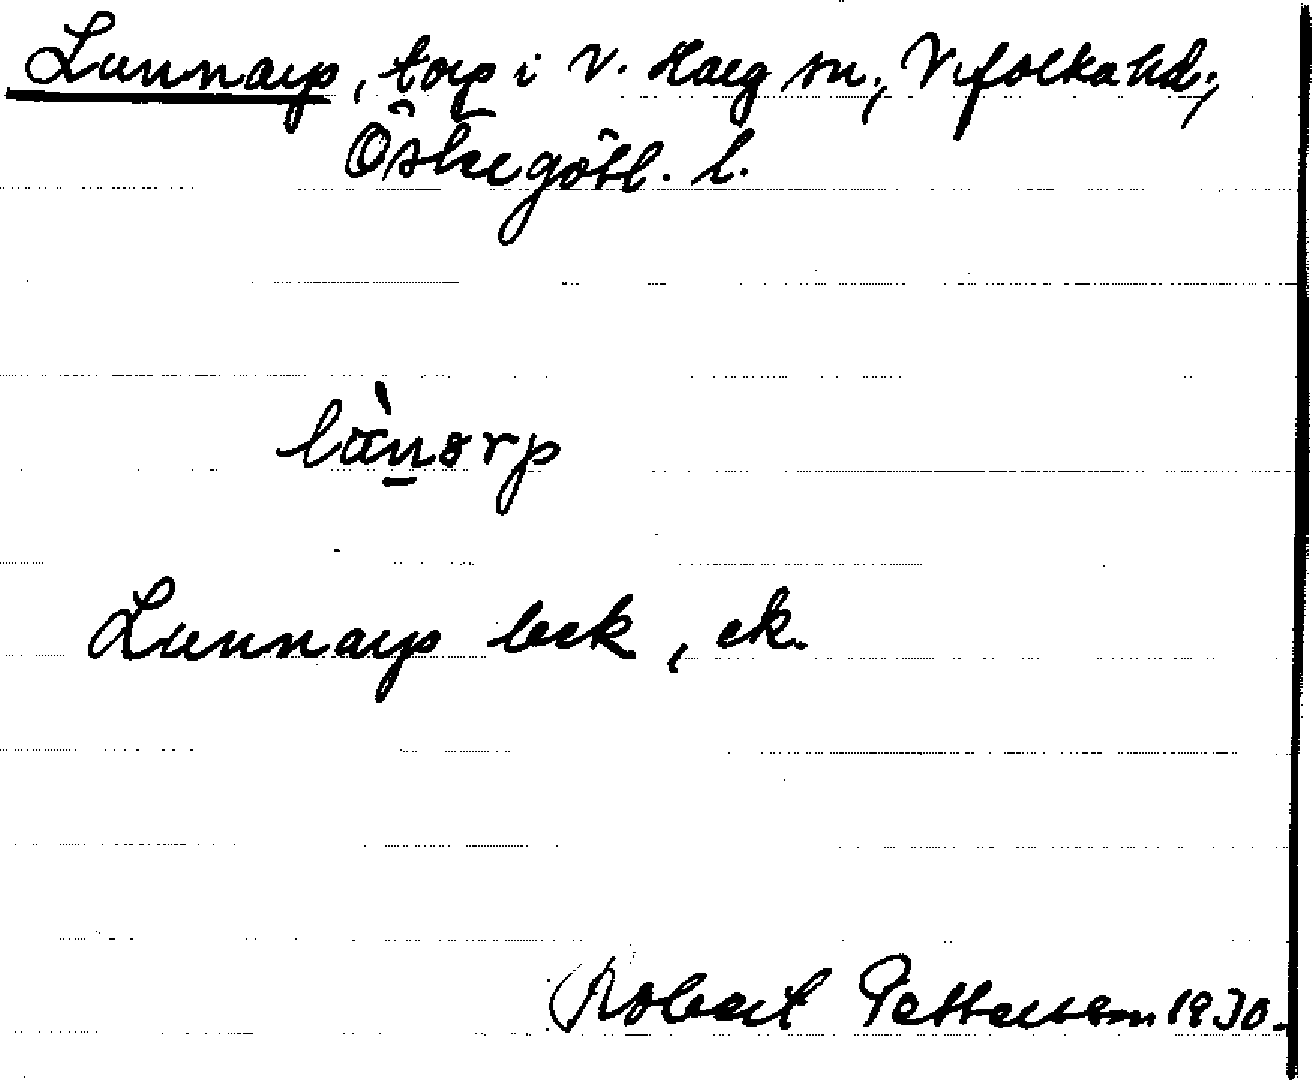 Lunnarp, torp i V. Harg sn, Vifolka hd.,
Östergötl. l.
lùnorp
Lunnarp beck, ek.
Robert Pettersson 1930.